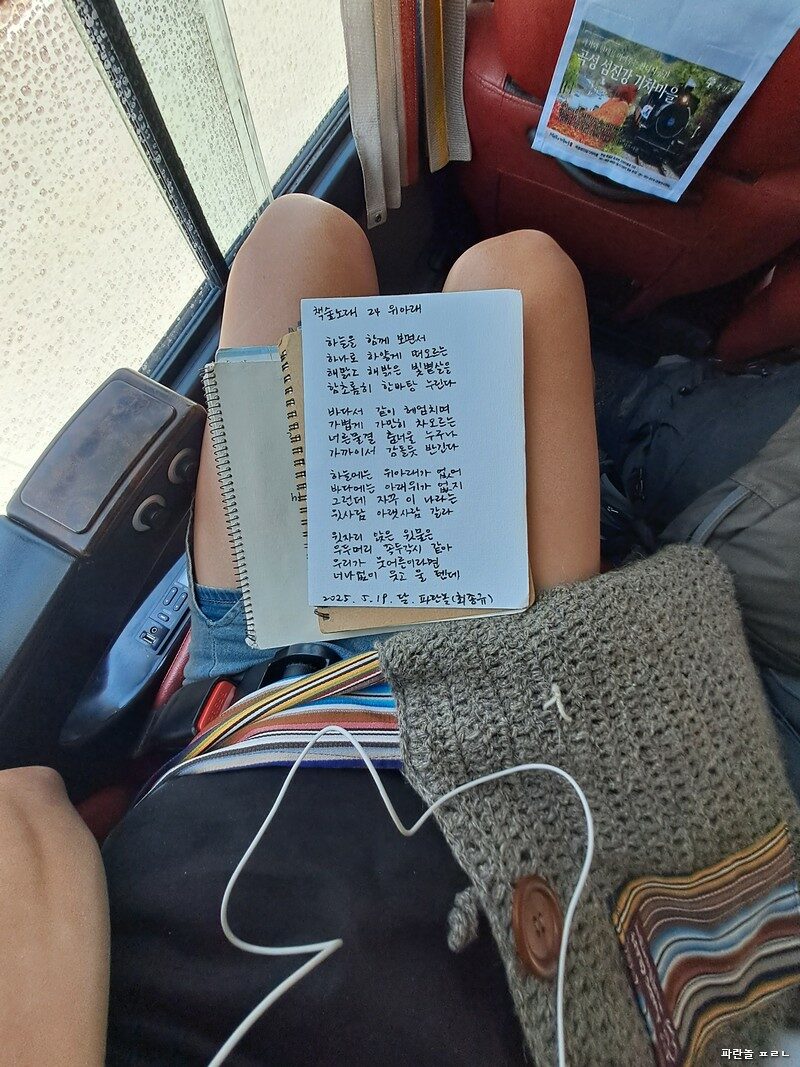 곡성 섬진강 기차마을
책숲노래 24 위아래
하늘을 함께 보면서
하나로 하얗게 떠오르는
해맑고 해밝은 빛볕살을
함초롬히 한마탕 누린다
바다서 같이 헤엄치며
가볍게 가만히 차오르는
너른물결 춤너울 누구나
가까이서 감돌듯 반긴다
하늘에는 위아래가 없어
바다에는 아래위가 없지
그런데 자꾸 이 나라는
윗사람 아랫사람 갈라
윗자리 앉은 윗물은
우두머리 꼭두각시 같아
우리가 웃어른이라면
너나없이 웃고 울 텐데
2025. 5. 19. 달. 파란놀(최종규)
파란놀 ㅍㄹㄴ